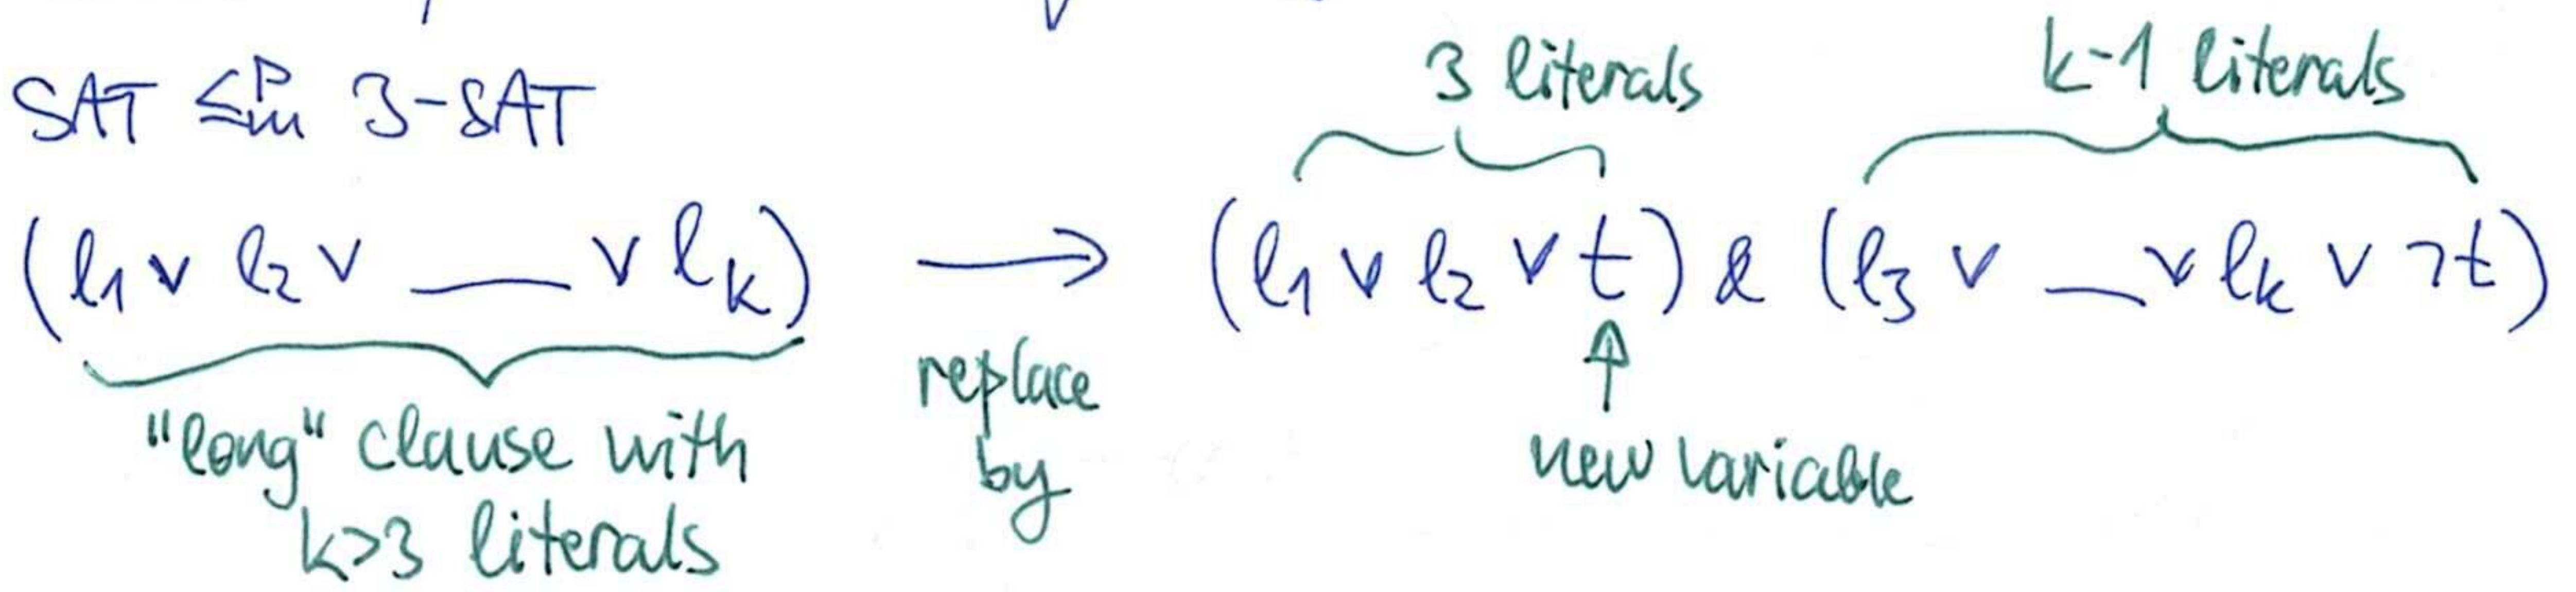 SAT ≤ᵖₘ 3-SAT
3 literals
k-1 literals
(l₁ ∨ l₂ ∨ __ ∨ lₖ) → (l₁ ∨ l₂ ∨ t) & (l₃ ∨ __ ∨ lₖ ∨ ¬t)
"long" clause with
k>3 literals
replace
by
new variable